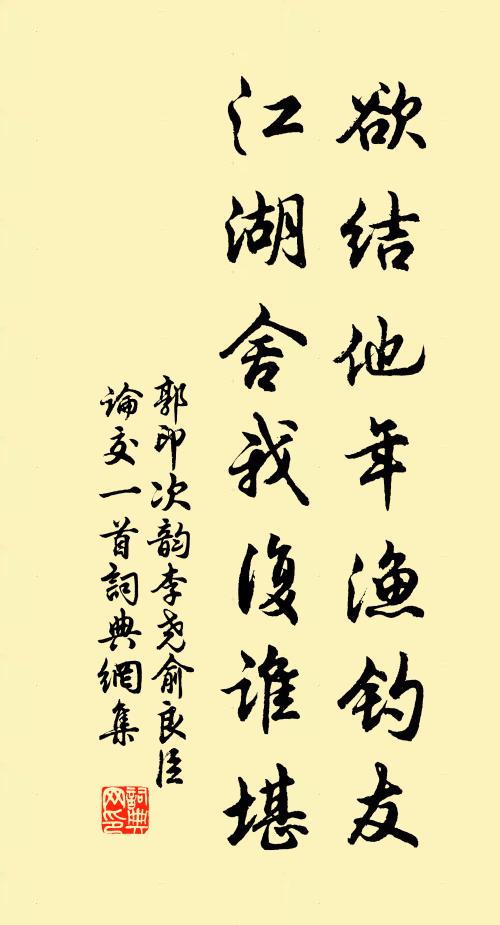 欲结他年渔钓友
江湖舍我復谁堪
郭印次韵李尧俞良臣
論交一首詞典網集
詞典网印